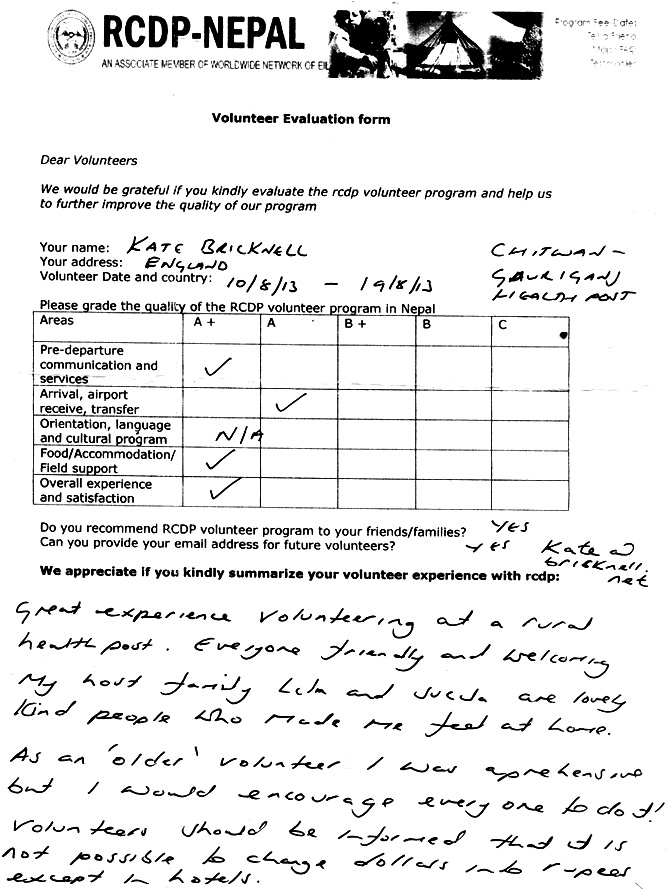 RCDP-NEPAL
AN ASSOCIATE MEMBER OF WORLDWIDE NETWORK OF EIL
Program Fee Dates
Tell a Friend
FAQ
Volunteer Evaluation form
Dear Volunteers
We would be grateful if you kindly evaluate the rcdp volunteer program and help us
to further improve the quality of our program
Your name: KATE BRICKNELL
Your address: ENGLAND
Volunteer Date and country: 10/8/13 - 19/8/13
CHITWAN -
GAURIGANJ
HEALTH POST
Please grade the quality of the RCDP volunteer program in Nepal
Areas A+ A B+ B C
Pre-departure
communication and ✓
services
Arrival, airport ✓
receive, transfer
Orientation, language
and cultural program N/A
Food/Accommodation/ ✓
Field support
Overall experience ✓
and satisfaction
Do you recommend RCDP volunteer program to your friends/families? YES
Can you provide your email address for future volunteers? YES Kate @
bricknell.
net
We appreciate if you kindly summarize your volunteer experience with rcdp:
Great experience volunteering at a rural
health post. Everyone friendly and welcoming
My host family and are lovely
kind people who made me feel at home.
As an 'older' volunteer I was aprehensive
but I would encourage everyone to do it!
Volunteers should be informed that it is
not possible to change dollars into rupees
except in hotels.